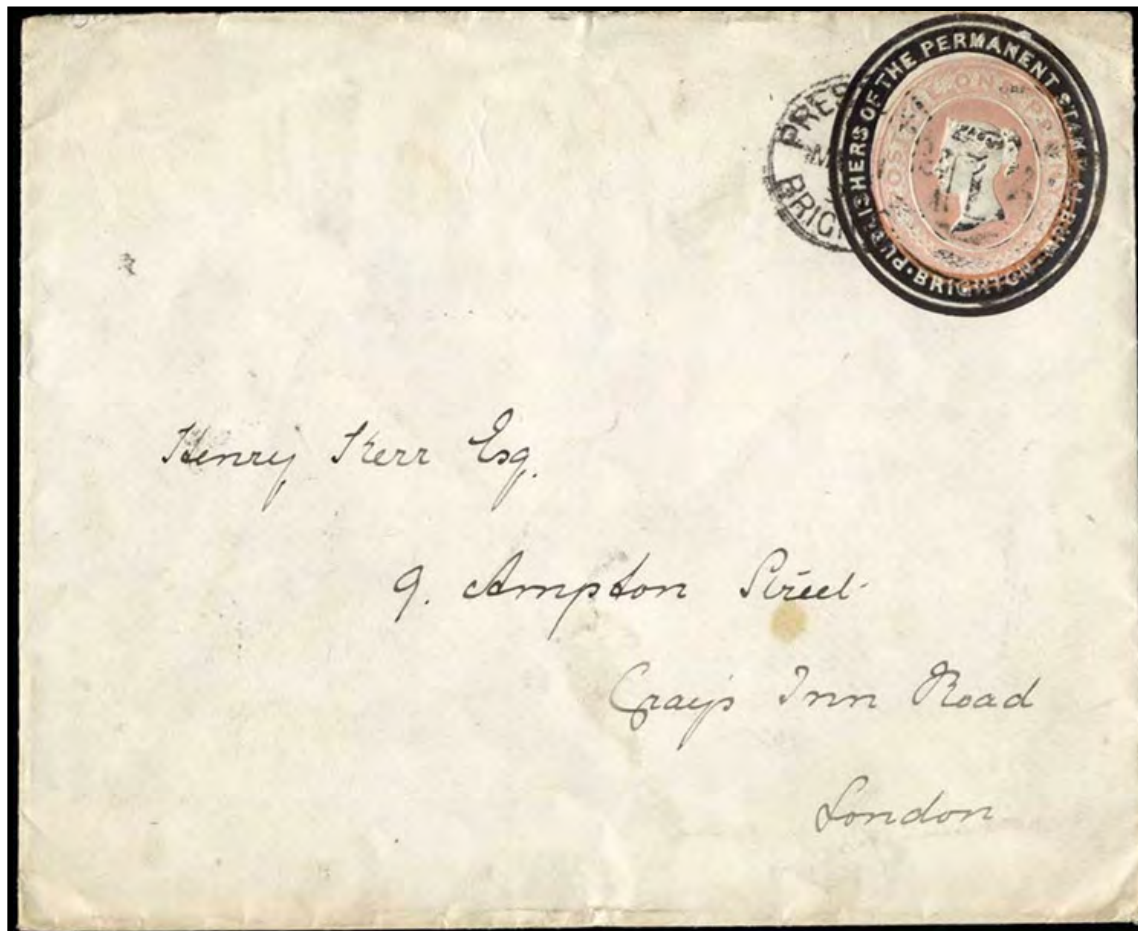 PUBLISHERS OF THE PERMANENT STAMP ALBUM · BRIGHTON ·
POSTAGE ONE PENNY
Henry Kerr Esq.
9. Ampton Street
Gray's Inn Road
London